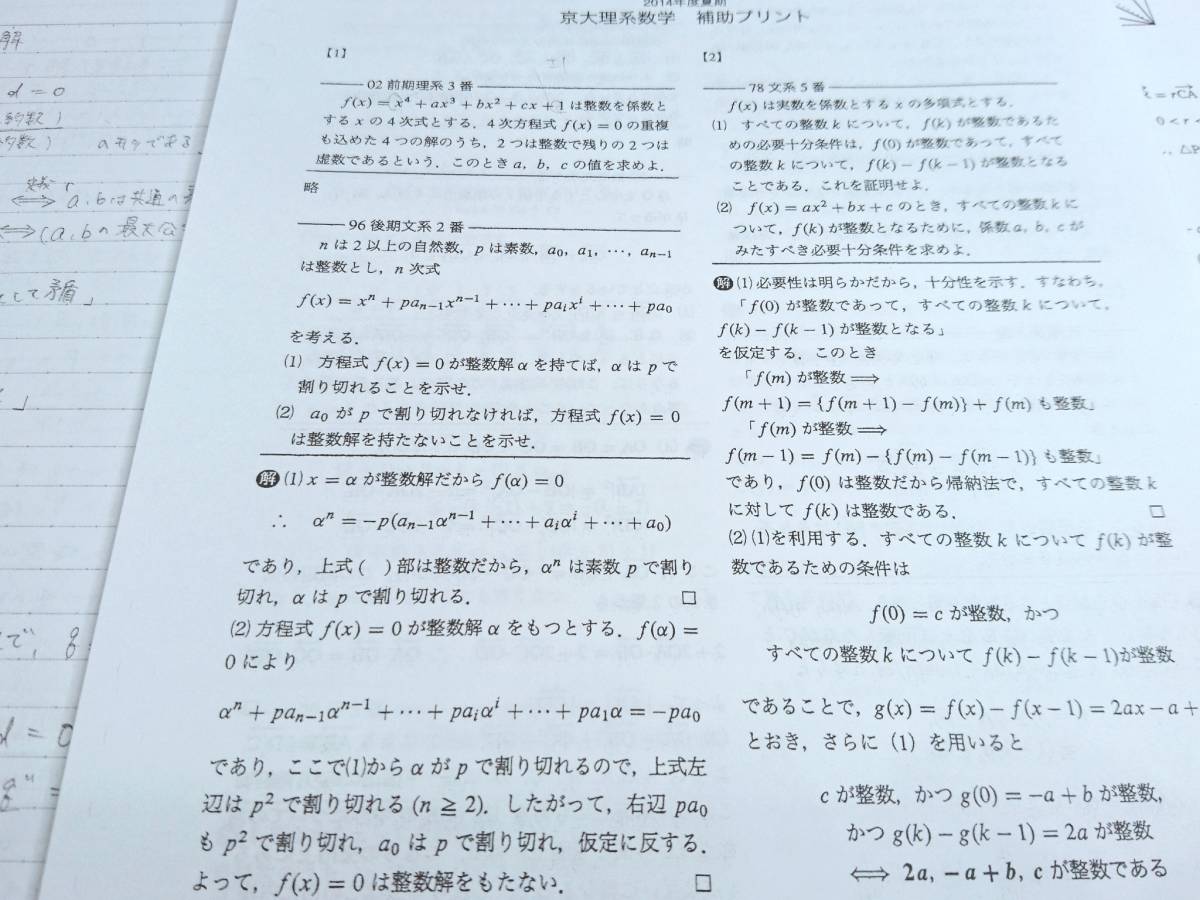 2014年度夏期
京大理系数学　補助プリント
【1】
02 前期理系 3 番
f(x) = x⁴ + ax³ + bx² + cx + 1 は整数を係数と
する x の 4 次式とする．4 次方程式 f(x) = 0 の重複
も込めた 4 つの解のうち，2 つは整数で残りの 2 つは
虚数であるという．このとき a，b，c の値を求めよ．
略
96 後期文系 2 番
n は 2 以上の自然数，p は素数，a₀，a₁，⋯，aₙ₋₁
は整数とし，n 次式
f(x) = xⁿ + paₙ₋₁xⁿ⁻¹ + ⋯ + paᵢxⁱ + ⋯ + pa₀
を考える．
(1) 方程式 f(x) = 0 が整数解 α を持てば，α は p で
割り切れることを示せ．
(2) a₀ が p で割り切れなければ，方程式 f(x) = 0
は整数解を持たないことを示せ．
解 (1) x = α が整数解だから f(α) = 0
∴ αⁿ = −p(aₙ₋₁αⁿ⁻¹ + ⋯ + aᵢαⁱ + ⋯ + a₀)
であり，上式 (　) 部は整数だから，αⁿ は素数 p で割り
切れ，α は p で割り切れる． □
(2) 方程式 f(x) = 0 が整数解 α をもつとする．f(α) =
0 により
αⁿ + paₙ₋₁αⁿ⁻¹ + ⋯ + paᵢαⁱ + ⋯ + pa₁α = −pa₀
であり，ここで(1)から α が p で割り切れるので，上式左
辺は p² で割り切れる (n ≧ 2)．したがって，右辺 pa₀
も p² で割り切れ，a₀ は p で割り切れ，仮定に反する．
よって，f(x) = 0 は整数解をもたない． □
【2】
78 文系 5 番
f(x) は実数を係数とする x の多項式とする．
(1) すべての整数 k について，f(k) が整数であるた
めの必要十分条件は，f(0) が整数であって，すべて
の整数 k について，f(k) − f(k − 1) が整数となる
ことである．これを証明せよ．
(2) f(x) = ax² + bx + c のとき，すべての整数 k に
ついて，f(k) が整数となるために，係数 a，b，c が
みたすべき必要十分条件を求めよ．
解 (1) 必要性は明らかだから，十分性を示す．すなわち，
「f(0) が整数であって，すべての整数 k について，
f(k) − f(k − 1) が整数となる」
を仮定する．このとき
「f(m) が整数 ⟹
f(m + 1) = {f(m + 1) − f(m)} + f(m) も整数」
「f(m) が整数 ⟹
f(m − 1) = f(m) − {f(m) − f(m − 1)} も整数」
であり，f(0) は整数だから帰納法で，すべての整数 k
に対して f(k) は整数である． □
(2) (1)を利用する．すべての整数 k について f(k) が整
数であるための条件は
f(0) = c が整数，かつ
すべての整数 k について f(k) − f(k − 1)が整数
であることで，g(x) = f(x) − f(x − 1) = 2ax − a +
とおき，さらに（1）を用いると
c が整数，かつ g(0) = −a + b が整数，
かつ g(k) − g(k − 1) = 2a が整数
⟺ 2a, −a + b, c が整数である
解
d = 0
a, bは共通の
(a, bの最大公
として矛盾」
d = 0